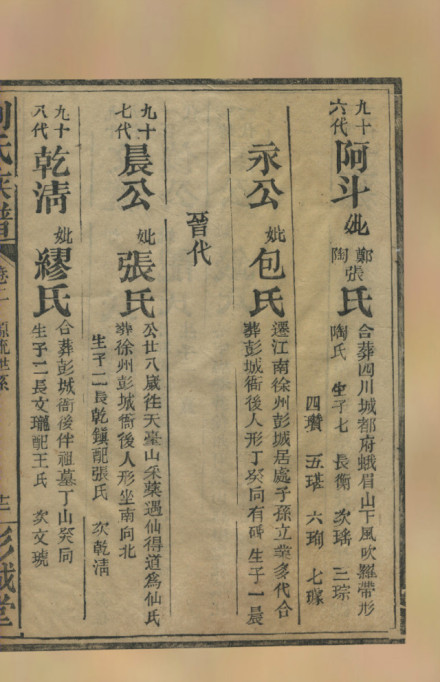 九十
六代
阿斗 妣
鄭
張
陶
氏
合葬四川城都府蛾眉山下風吹羅帶形
陶氏 生子七 長衡 次瑤 三琮
四瓚 五瑾 六珣 七璩
永公 妣 包氏
遷江南徐州彭城居處子孫立業多代合
葬彭城衙後人形丁癸向有碑 生子一晨
晉代
九十
七代
晨公 妣 張氏
公廿八歲往天臺山采藥遇仙得道爲仙氏
葬徐州彭城衙後人形坐南向北
生子二長乾鎭配張氏 次乾清
九十
八代
乾淸 妣 繆氏
合葬彭城衙後伴祖墓丁山癸向
生子二長文瓏配王氏 次文琥
劉氏族譜 卷二 源流世系 彭城堂